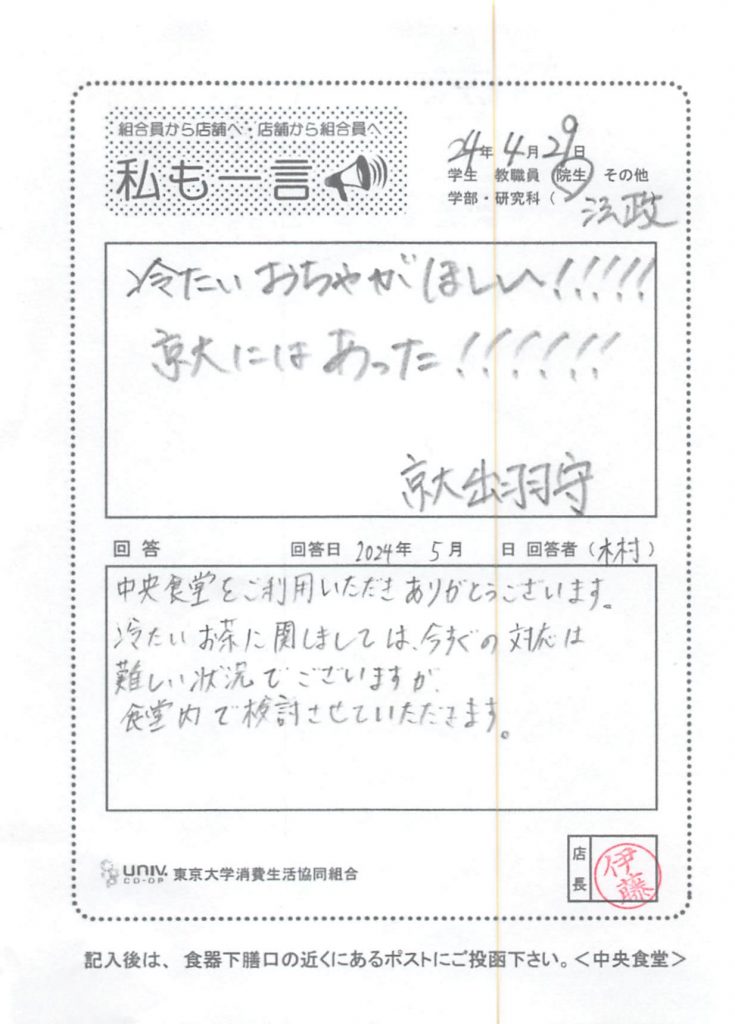 組合員から店舗へ・店舗から組合員へ
私も一言
24年4月29日
学生 教職員 院生 その他
学部・研究科(法政
冷たいおちゃがほしい!!!!!
京大にはあった!!!!!!!
京大出羽守
回答 回答日 2024年 5月 日 回答者(木村)
中央食堂をご利用いただきありがとうございます。
冷たいお茶に関しましては、今すぐの対応は
難しい状況でございますが、
食堂内で検討させていただきます。
UNIV. CO-OP 東京大学消費生活協同組合
店長
伊藤
記入後は、食器下膳口の近くにあるポストにご投函下さい。<中央食堂>